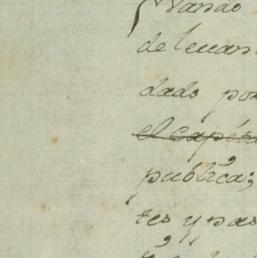 Mando
de levan
dado por
el capita
publica;
tes y pas